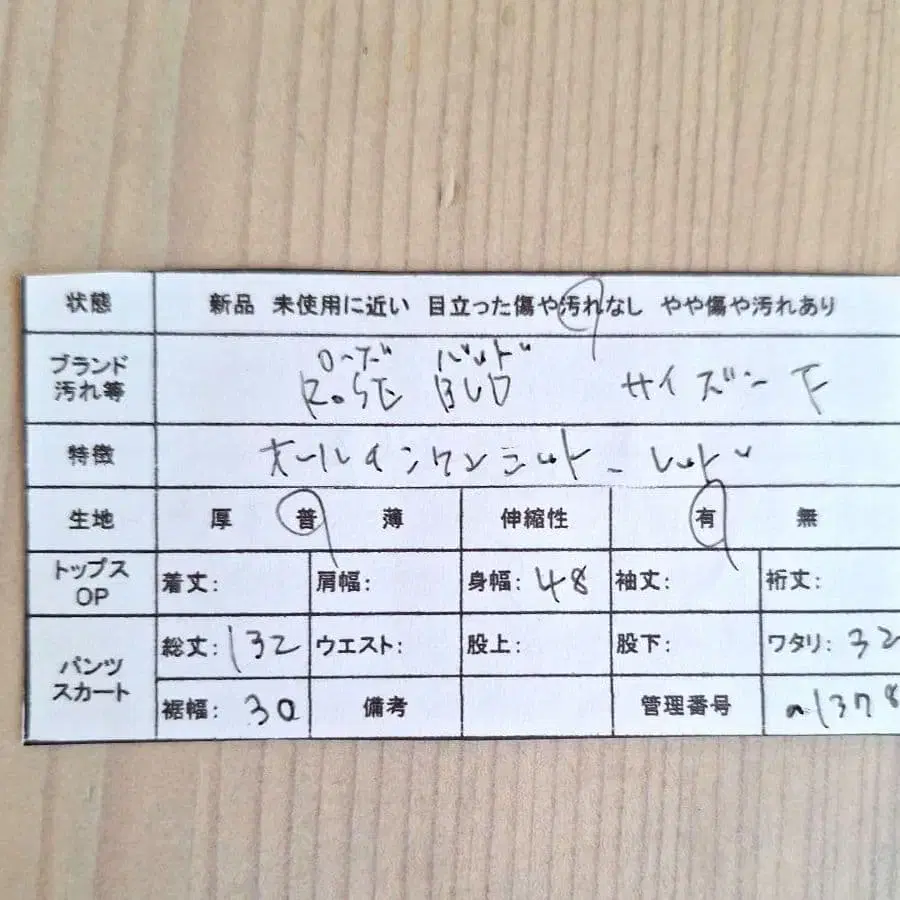 状態 新品 未使用に近い 目立った傷や汚れなし やや傷や汚れあり
ローズ バッド
ブランド 汚れ等 ROSE BUD サイズー F
特徴 オールインワンニット - レッド
生地 厚 普 薄 伸縮性 有 無
トップス OP 着丈: 肩幅: 身幅: 48 袖丈: 裄丈:
パンツ スカート 総丈: 132 ウエスト: 股上: 股下: ワタリ: 32
裾幅: 30 備考 管理番号 a1378